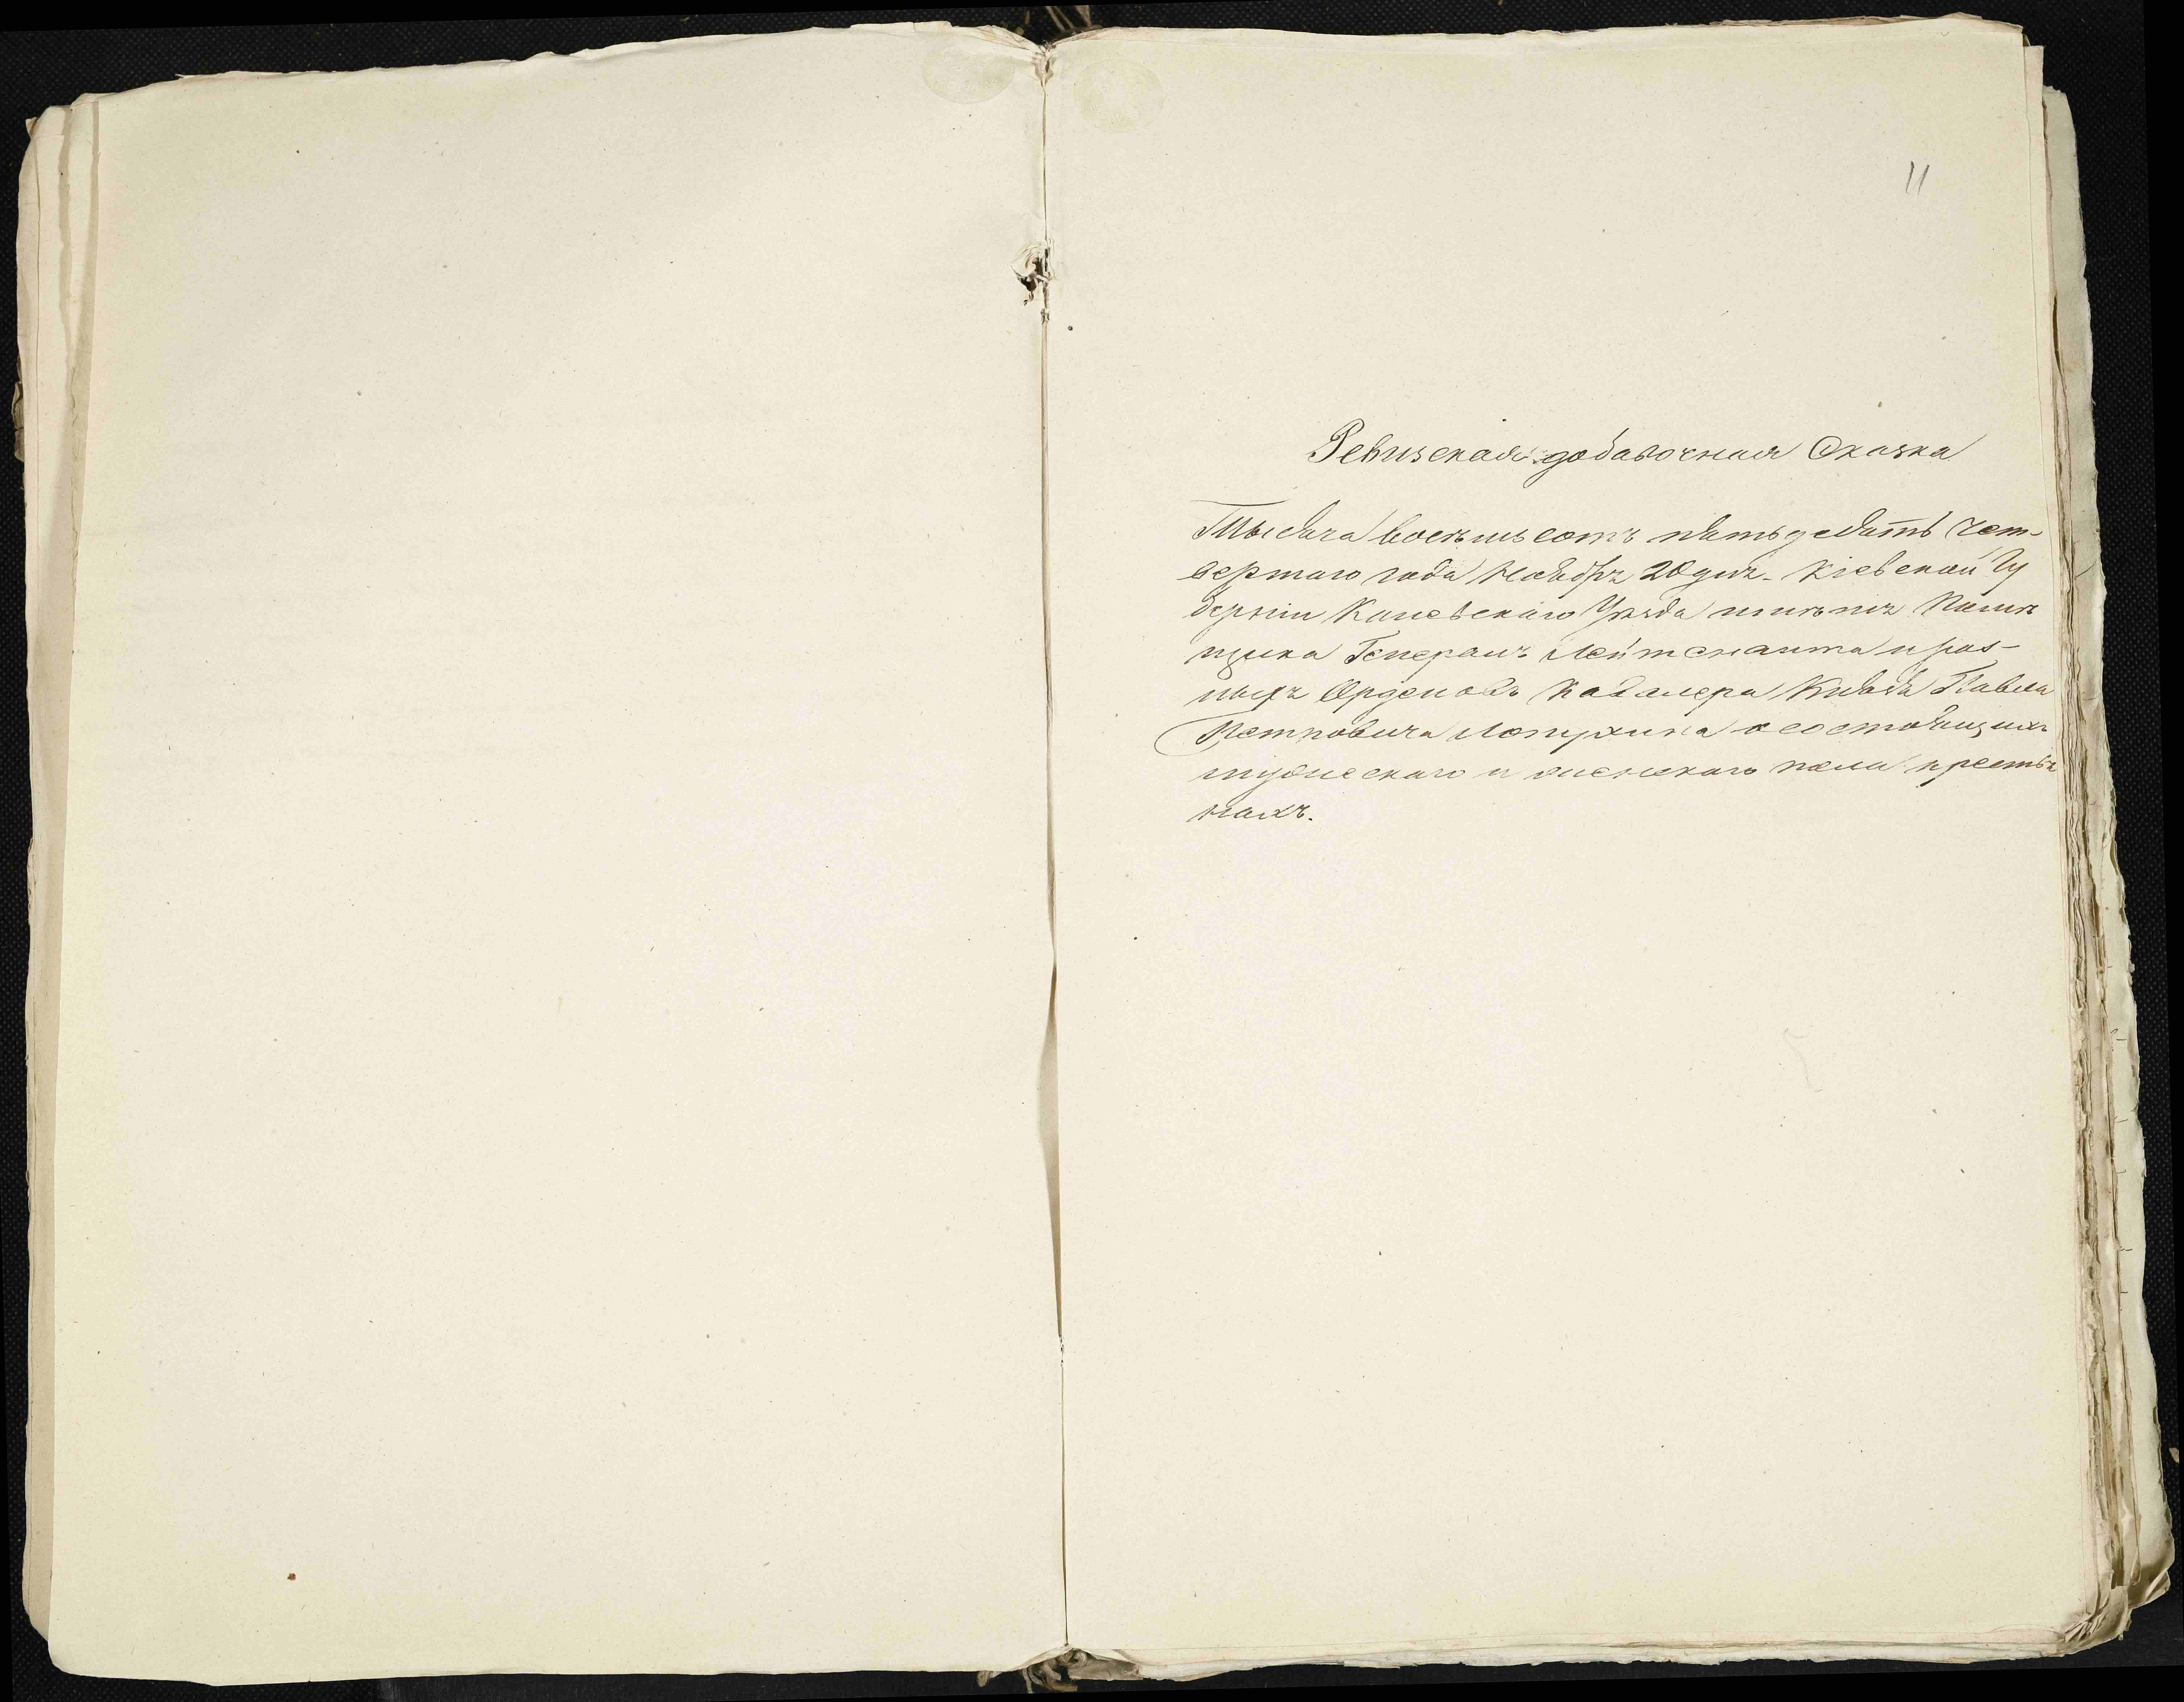 11
Ревизская добавочная Сказка
Тысяча восемьсотъ пятьдесятъ чет-
вертаго года Ноября 20 дня. Кіевской Гу
берніи Каневскаго Уѣзда имѣнія Помѣ
щика Генералъ Лейтенанта и раз-
ныхъ Орденовъ Кавалера Князя Павла
Петровича Лопухина о состоящихъ
мужескаго и женскаго пола крестья
нахъ.